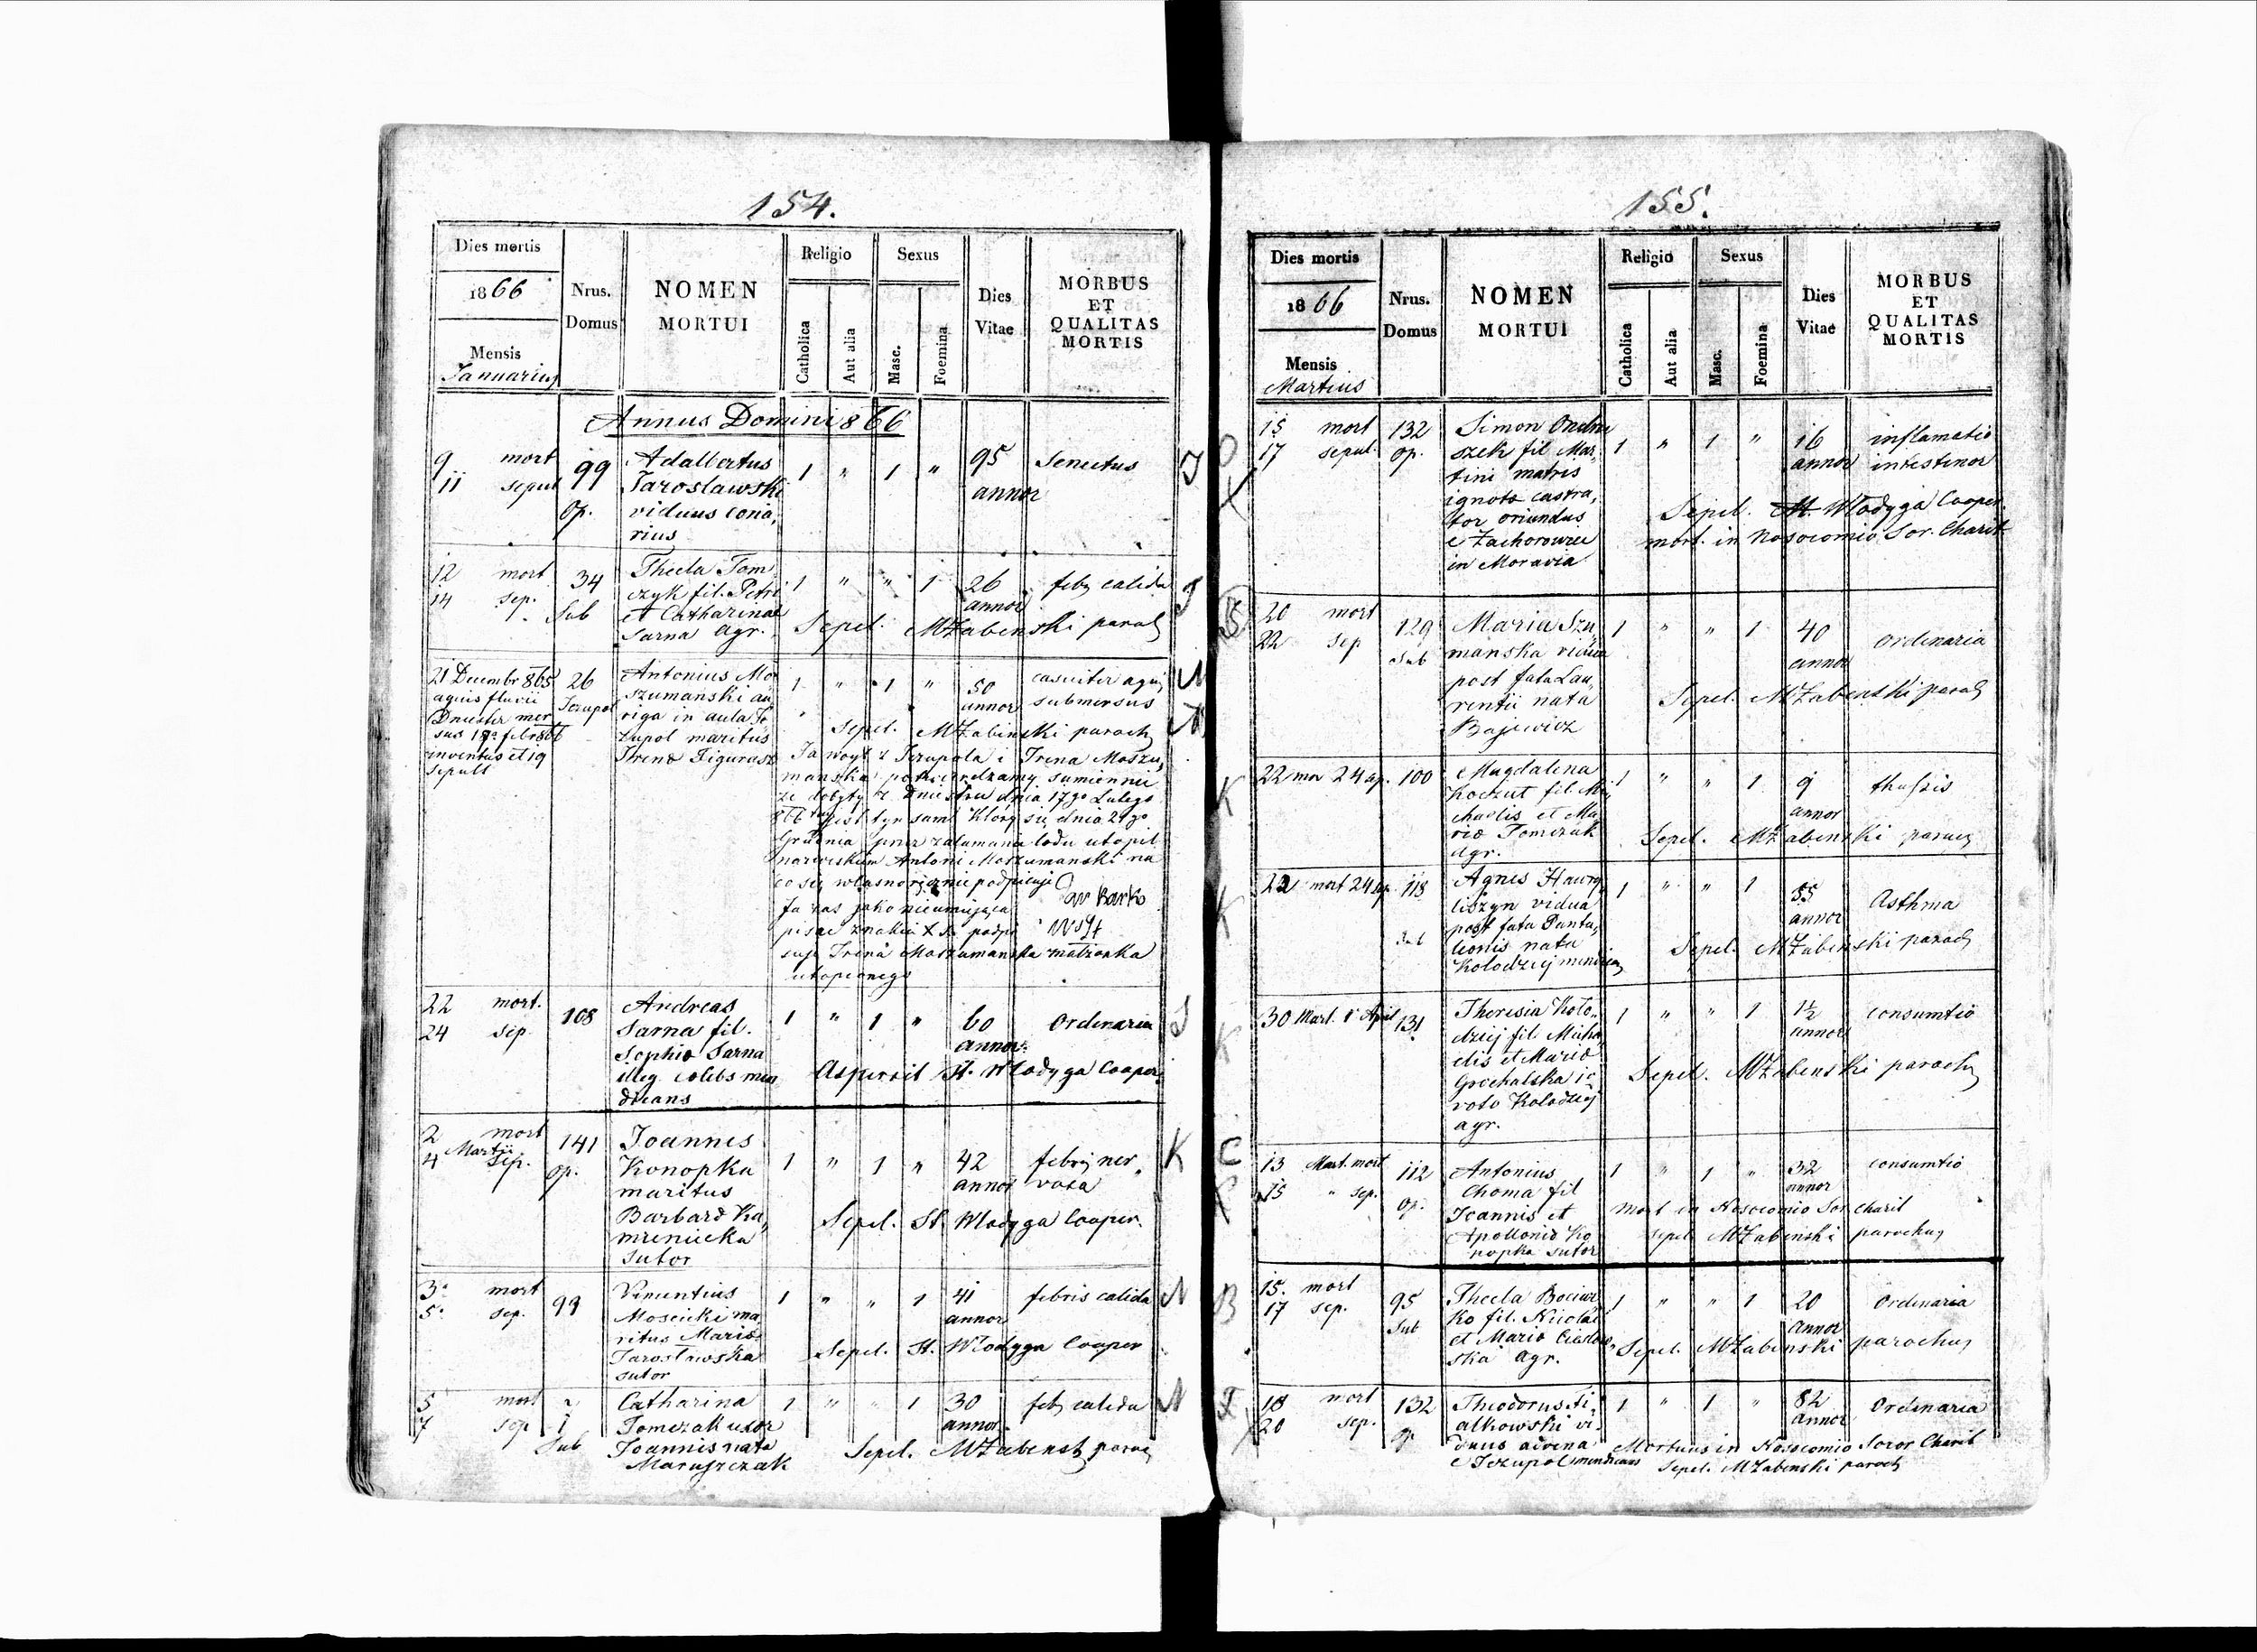 154.
Dies mortis
1866
Mensis
Januarius
Nrus.
Domus
NOMEN
MORTUI
Religio
Catholica
Aut alia
Sexus
Masc.
Foemina
Dies
Vitae
MORBUS
ET
QUALITAS
MORTIS
Annus Domini 866
9 mort
11 sepult
99
Op.
Adalbertus
Jaroslawski
viduus coria,
rius
1 " 1 "
95
annor
Senectus
J
12 mort
14 sep.
34
Sub
Thecla Tom
czyk fil. Petri
et Catharinae
Sarna agr.
1 " " 1
26
annor
febr calida
Sepel. MŻabinski paroch
21 Decembr 865
aquis fluvii
Dniestr mer
sus 17a febr 866
inventus et 19
sepult
26
Jezupol
Antonius Mo
szumanski au
riga in aula Je
zupol maritus
Irenae Figurasz
1 " 1 "
50
annor
casuiter aquis
submersus
Sepel. MŻabinski paroch
Ja woyt z Jezupola i Irena Moszu,
manska potwierdzamy sumiennie
że dobyty z Dniestru dnia 17go Lutego
866 jest tym samé który się dnia 21go
Grudnia przez załamana lodu utopił
nazwiskiem Antoni Moszumanski na
co się własnoręcznie podpisuje
Barko
Woyt
Ja zas jako nieumiejąca
pisać znakiem X się podpi
suję Irena Moszumanska małżonka
utopionego
22 mort.
24 sep.
108
Andreas
Sarna fil.
Sophiae Sarna
illeg. coelebs men
dicans
1 " 1 "
60
annor.
Ordinaria
S
Aspersit St. Wlodyga Cooper.
2 mort
Martii
4 sep.
141
op.
Joannes
Konopka
maritus
Barbarae Ka,
mieniecka
sutor
1 " 1 "
42
annor
febris ner
vosa
K
Sepel. St. Wlodyga Cooper.
3 mort
5 sep.
99
Vincentius
Moscicki ma
ritus Mariae
Jarosławska
sutor
1 " " 1
41
annor
febris calida
Sepel. St. Wlodyga Cooper
5 mort
7 sep
Sub
Catharina
Tomczak uxor
Joannis nata
Maruszczak
1 " " 1
30
annor
febr calida
Sepel. MŻabinski paroch
155.
Dies mortis
1866
Mensis
Martius
Nrus.
Domus
NOMEN
MORTUI
Religio
Catholica
Aut alia
Sexus
Masc.
Foemina
Dies
Vitae
MORBUS
ET
QUALITAS
MORTIS
15 mort
17 sepul.
132
op.
Simon Ondru
szek fil Mar,
tini matris
ignotae castra,
tor oriundus
e Zachorowzee
in Moravia
1 " 1 "
16
annor
inflamatio
intestinor
Sepel. St. Wlodyga Cooper.
mort. in Nosocomio Sor. Charit
20 mort
22 sep
129
Sub
Maria Szy
manska vidua
post fata Lau,
rentii nata
Bajewicz
1 " " 1
40
annor
ordinaria
Sepel. MŻabinski paroch
K
22 mor 24 sep. 100
Magdalena
Koczut fil. Mi
chaelis et Ma
riae Tomczak
agr.
1 " " 1
9
annor
thussis
Sepel. MŻabinski paroch
K
22 mort 24 sep. 118
Sub
Agnes Hawry
liszyn vidua
post fata Panta,
leonis nata
Kolodziej mendicans
1 " " 1
55
annor
Asthma
Sepel. MŻabinski paroch
K
30 Mart. 1 April 131
Theresia Koło,
dziej fil Micha,
elis et Mariae
Grochalska
voto Kolodziej
agr.
1 " " 1
1½
annor
consumtio
Sepel. MŻabinski paroch
C
13 Mart. mort
15 " sep.
112
op.
Antonius
Choma fil
Joannis et
Apolloniae Ko
nopka sutor
1 " 1 "
32
annor
consumtio
Mort in Nosocomio Sor Charit
sepel MŻabinski parochus
B
15. mort
17 sep.
95
Sub
Thecla Bociur
ko fil. Nicolai
et Mariae Cieslow,
ska agr.
1 " " 1
20
annor
Ordinaria
Sepel. MŻabinski parochus
18 mort
20 sep.
132
op
Theodorus Fi,
alkowski vi,
duus advena
e Jezupol mendicans
1 " 1 "
82
annor
Ordinaria
Mortuus in Nosocomio Soror Charit
Sepel. MŻabinski paroch